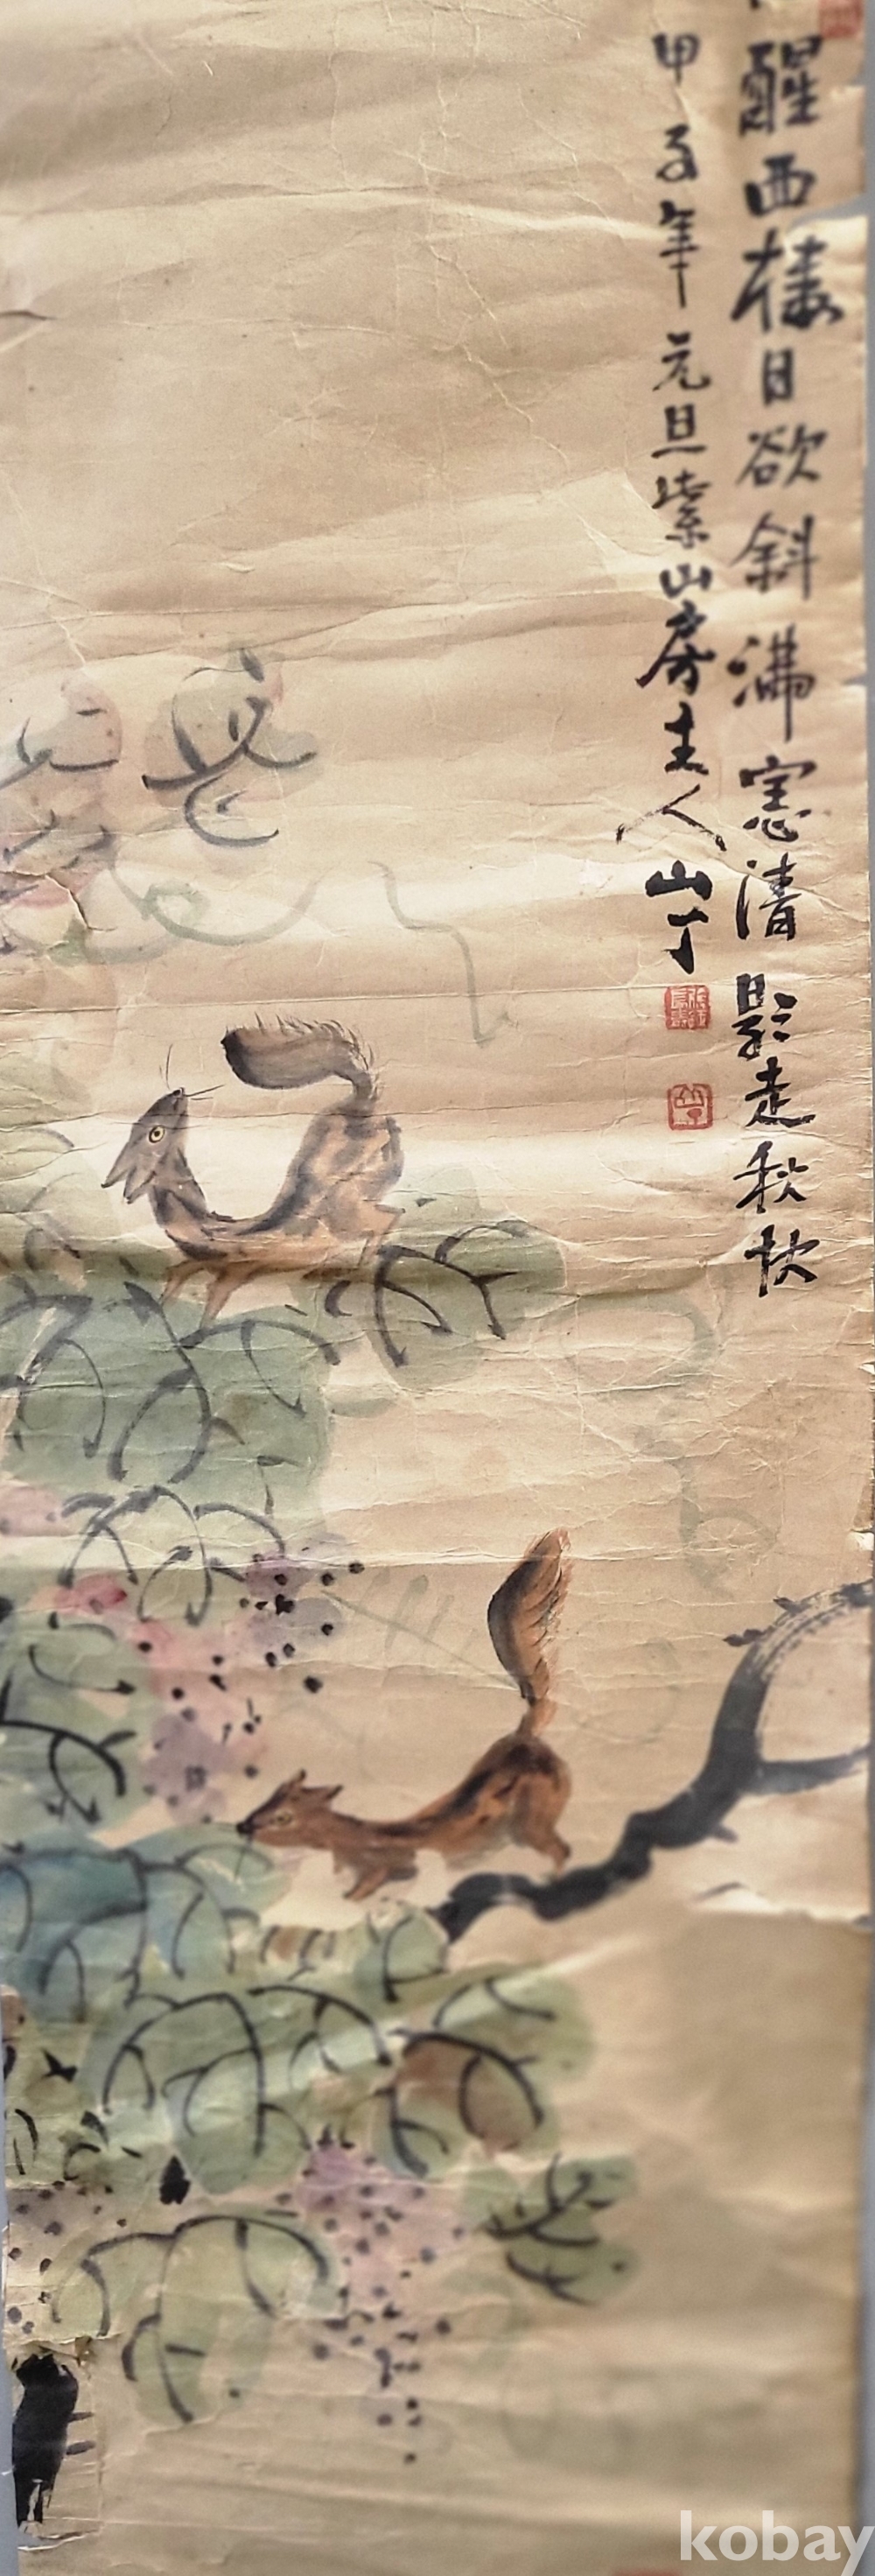 醒西樓日欲斜滿窓清影走秋
甲子年元旦紫山房主人山丁
kobay